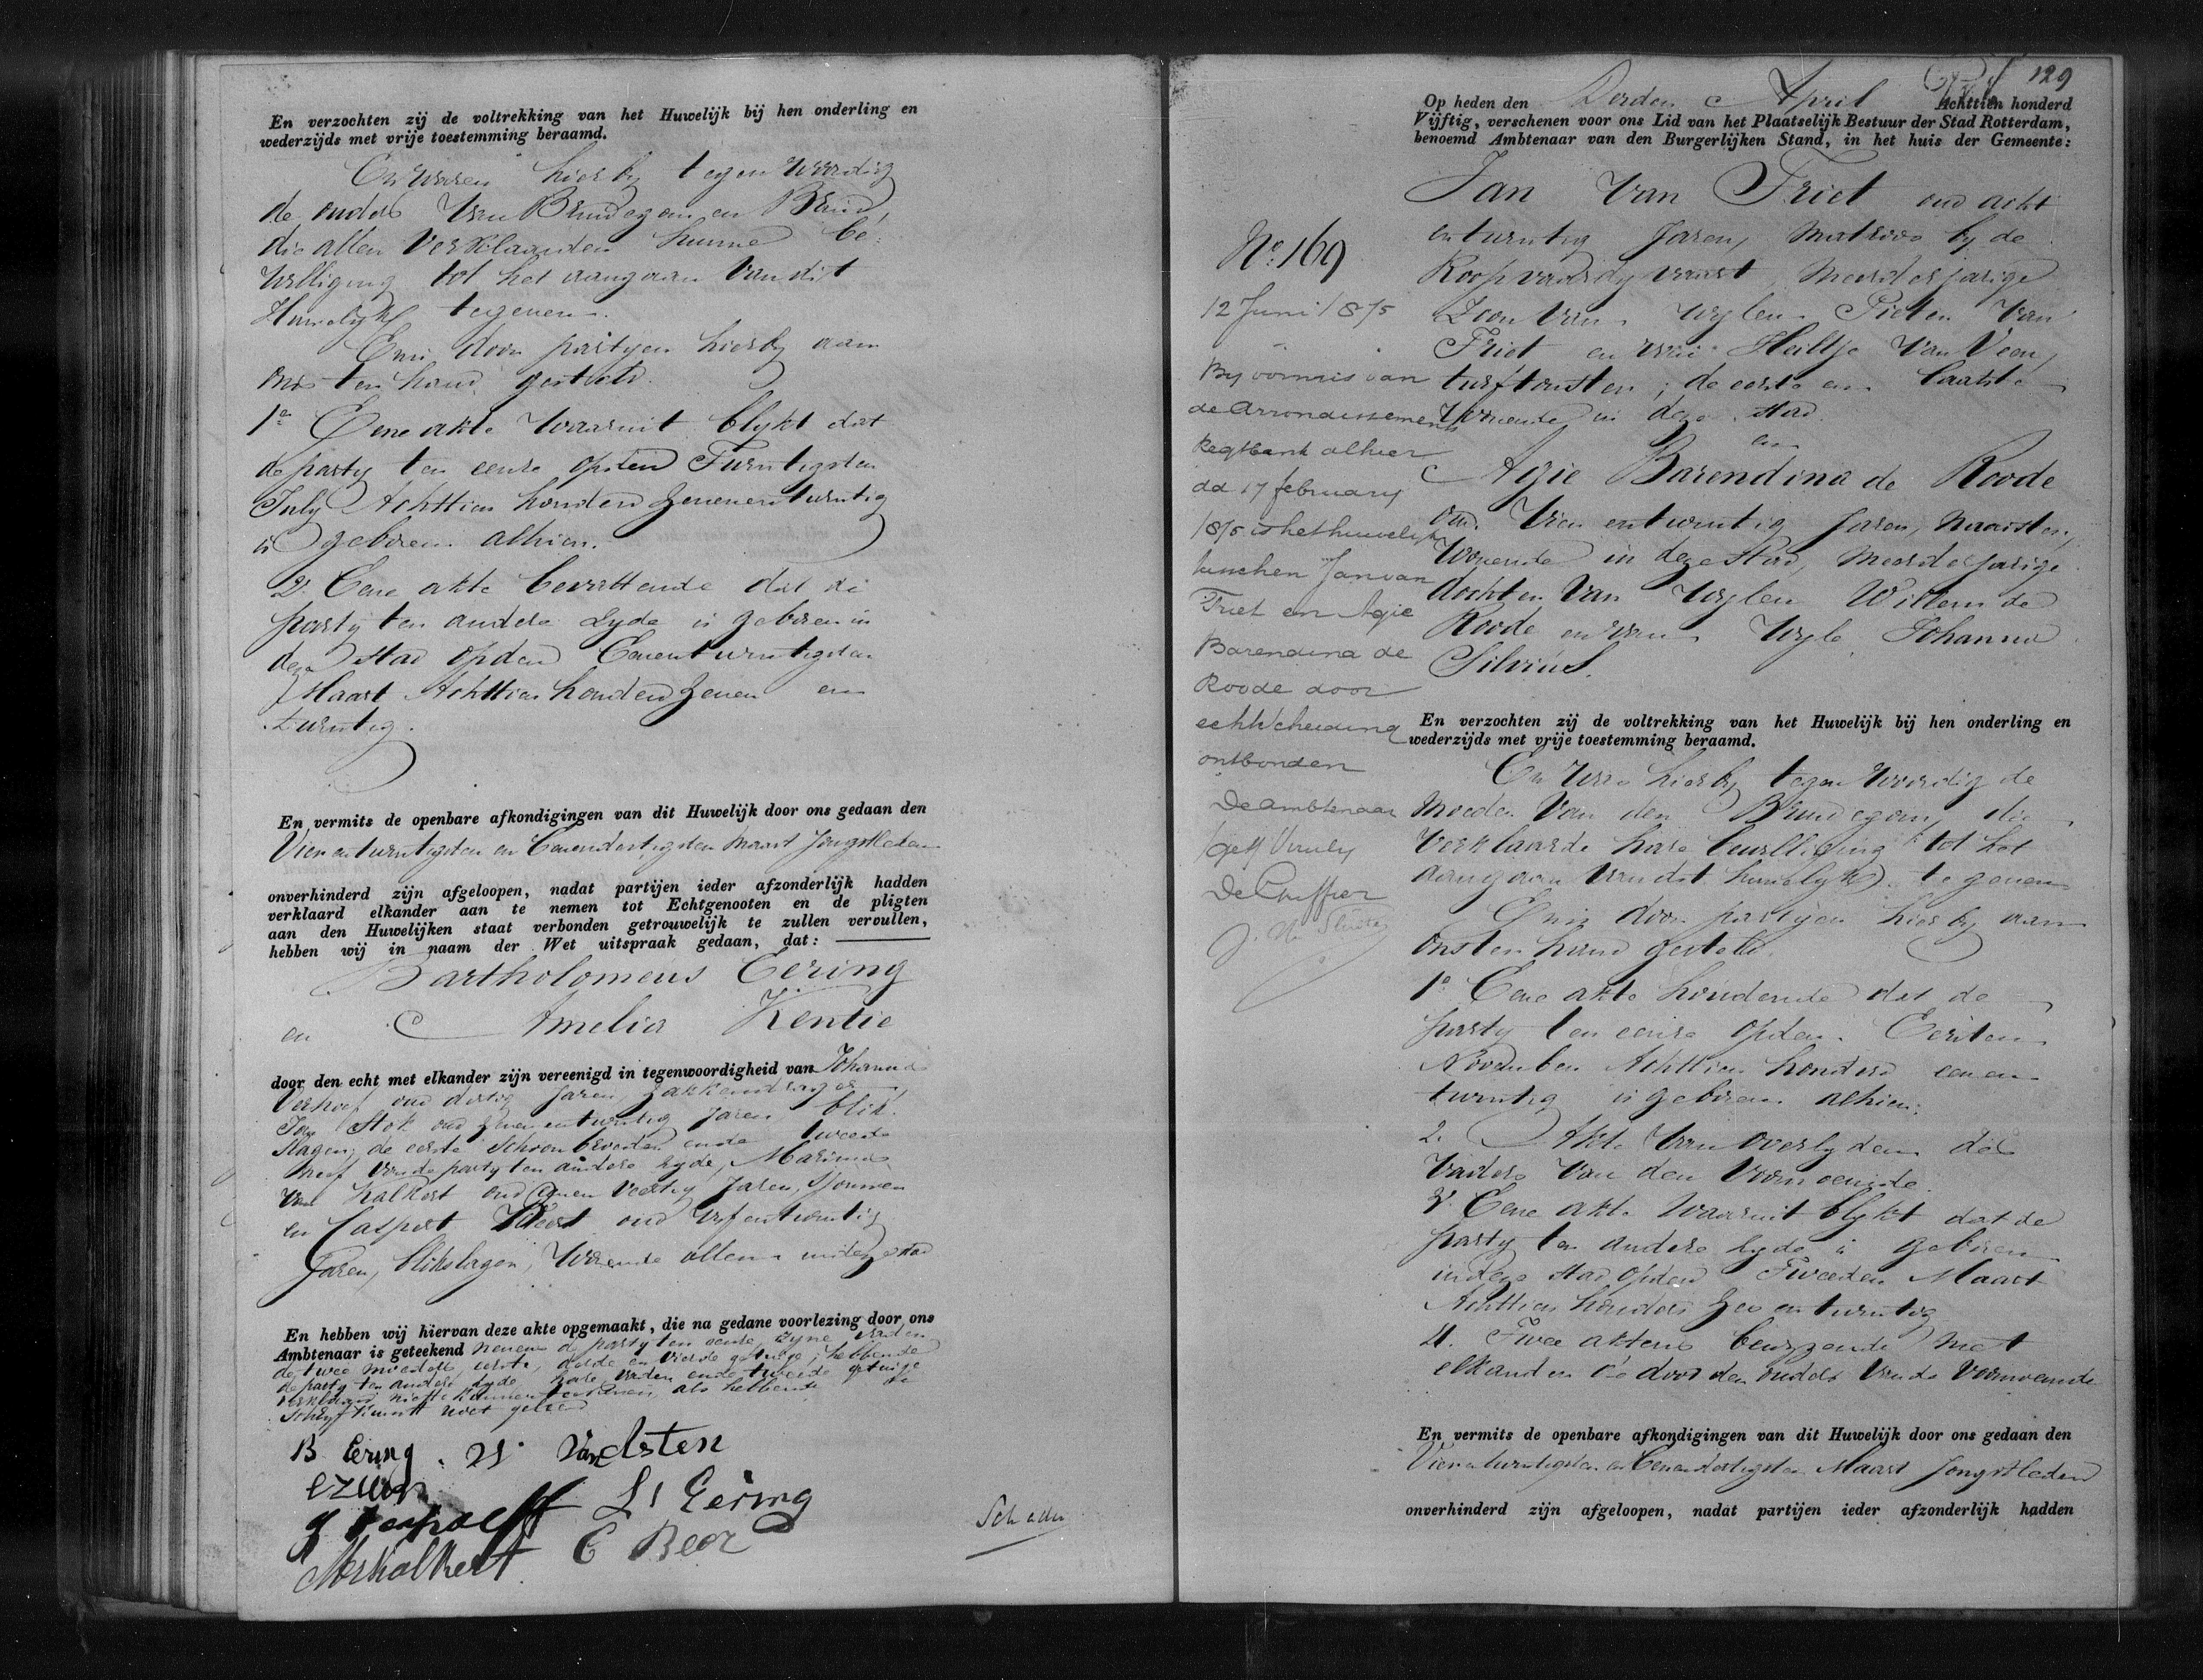 En verzochten zij de voltrekking van het Huwelijk bij hen onderling en
wederzijds met vrije toestemming beraamd.
En waren hierbij tegenwoordig
de ouders van Bruidegom en Bruid,
die allen verklaarden hunne be-
williging tot het aangaan van dit
Huwelijk te geven.
En is door partyen hierby aan
ons ter hand gesteld.
1e Eene akte waaruit blykt dat
de party ten eenre op den Twintigsten
July Achttien honderd zevenentwintig
is geboren alhier.
2. Eene akte bevattende dat de
party ten andere zyde is geboren in
deze stad op den Eenentwintigsten
Maart Achttien honderd zeven en
twintig.
En vermits de openbare afkondigingen van dit Huwelijk door ons gedaan den
Vierentwintigsten en Eenendertigsten Maart Jongstleden
onverhinderd zijn afgeloopen, nadat partijen ieder afzonderlijk hadden
verklaard elkander aan te nemen tot Echtgenooten en de pligten
aan den Huwelijken staat verbonden getrouwelijk te zullen vervullen,
hebben wij in naam der Wet uitspraak gedaan, dat:
Bartholomeus Eering
en Amelia Kentie
door den echt met elkander zijn vereenigd in tegenwoordigheid van Johannes
Verhoef oud dertig Jaren, zakkendrager
Jan Stok oud zevenentwintig Jaren blik-
slager, de eerste Schoonbroeder en de tweede
neef van de party ten andere zyde, Marinus
van Kalkert oud Jaren, Sjouwer
en Caspert Beer oud vyfentwintig
Jaren, blikslager, wonende allen in deze stad
En hebben wij hiervan deze akte opgemaakt, die na gedane voorlezing door ons
Ambtenaar is geteekend nevens de party ten eenre, zyne vader
de twee moeders eerste, derde en vierde getuige; hebbende
de party ten andere zyde hare vader en de tweede getuige
verklaard niet te kunnen teekenen als hebbende de
Schryfkunst niet geleerd
B Eering. Van Asten
L Eering
J Verhoeff
C Beer
MvKalkert
Schader
129
Op heden den Derden April Achttien honderd
Vijftig, verschenen voor ons Lid van het Plaatselijk Bestuur der Stad Rotterdam,
benoemd Ambtenaar van den Burgerlijken Stand, in het huis der Gemeente:
Jan van Triet oud acht
entwintig Jaren, Matroos by de
Koopvaardyvaart, meerderjarige
Zoon van wylen Pieter van
Triet en van Heiltje van Veen,
turftonster; de eerste en laatste
wonende in deze stad
en
Agie Barendina de Roode
oud vierentwintig Jaren, naaister,
wonende in deze Stad, meerderjarige
dochter van wylen Willem de
Roode en van wyle Johanna
Silvius.
No. 169
12 Juni 1875
By vonnis van
de Arrondissements
Regtbank alhier
dd 17 february
1875 is het huwelijk
tusschen Jan van
Triet en Agie
Barendina de
Roode door
echtscheiding
ontbonden
De Ambtenaar
De Griffier
En verzochten zij de voltrekking van het Huwelijk bij hen onderling en
wederzijds met vrije toestemming beraamd.
En was hierby tegenwoordig de
moeder van den Bruidegom, die
verklaarde hare bewilliging tot het
aangaan van dit huwelijk te geven
En is door partyen hierby aan
ons ter hand gesteld.
1e Eene akte houdende dat de
party ten eenre op den Eersten
November Achttien honderd een en
twintig is geboren alhier.
2. Akte van overlyden des
Vaders van den Voornoemde
3. Eene akte waaruit blykt dat de
party ten andere zyde is geboren
in deze stad op den Tweeden Maart
Achttien honderd zes en twintig
4. Twee aktens bewyzende met
elkander dood der ouders van de Voornoemde
En vermits de openbare afkondigingen van dit Huwelijk door ons gedaan den
Vierentwintigsten en Eenendertigsten Maart Jongstleden
onverhinderd zijn afgeloopen, nadat partijen ieder afzonderlijk hadden